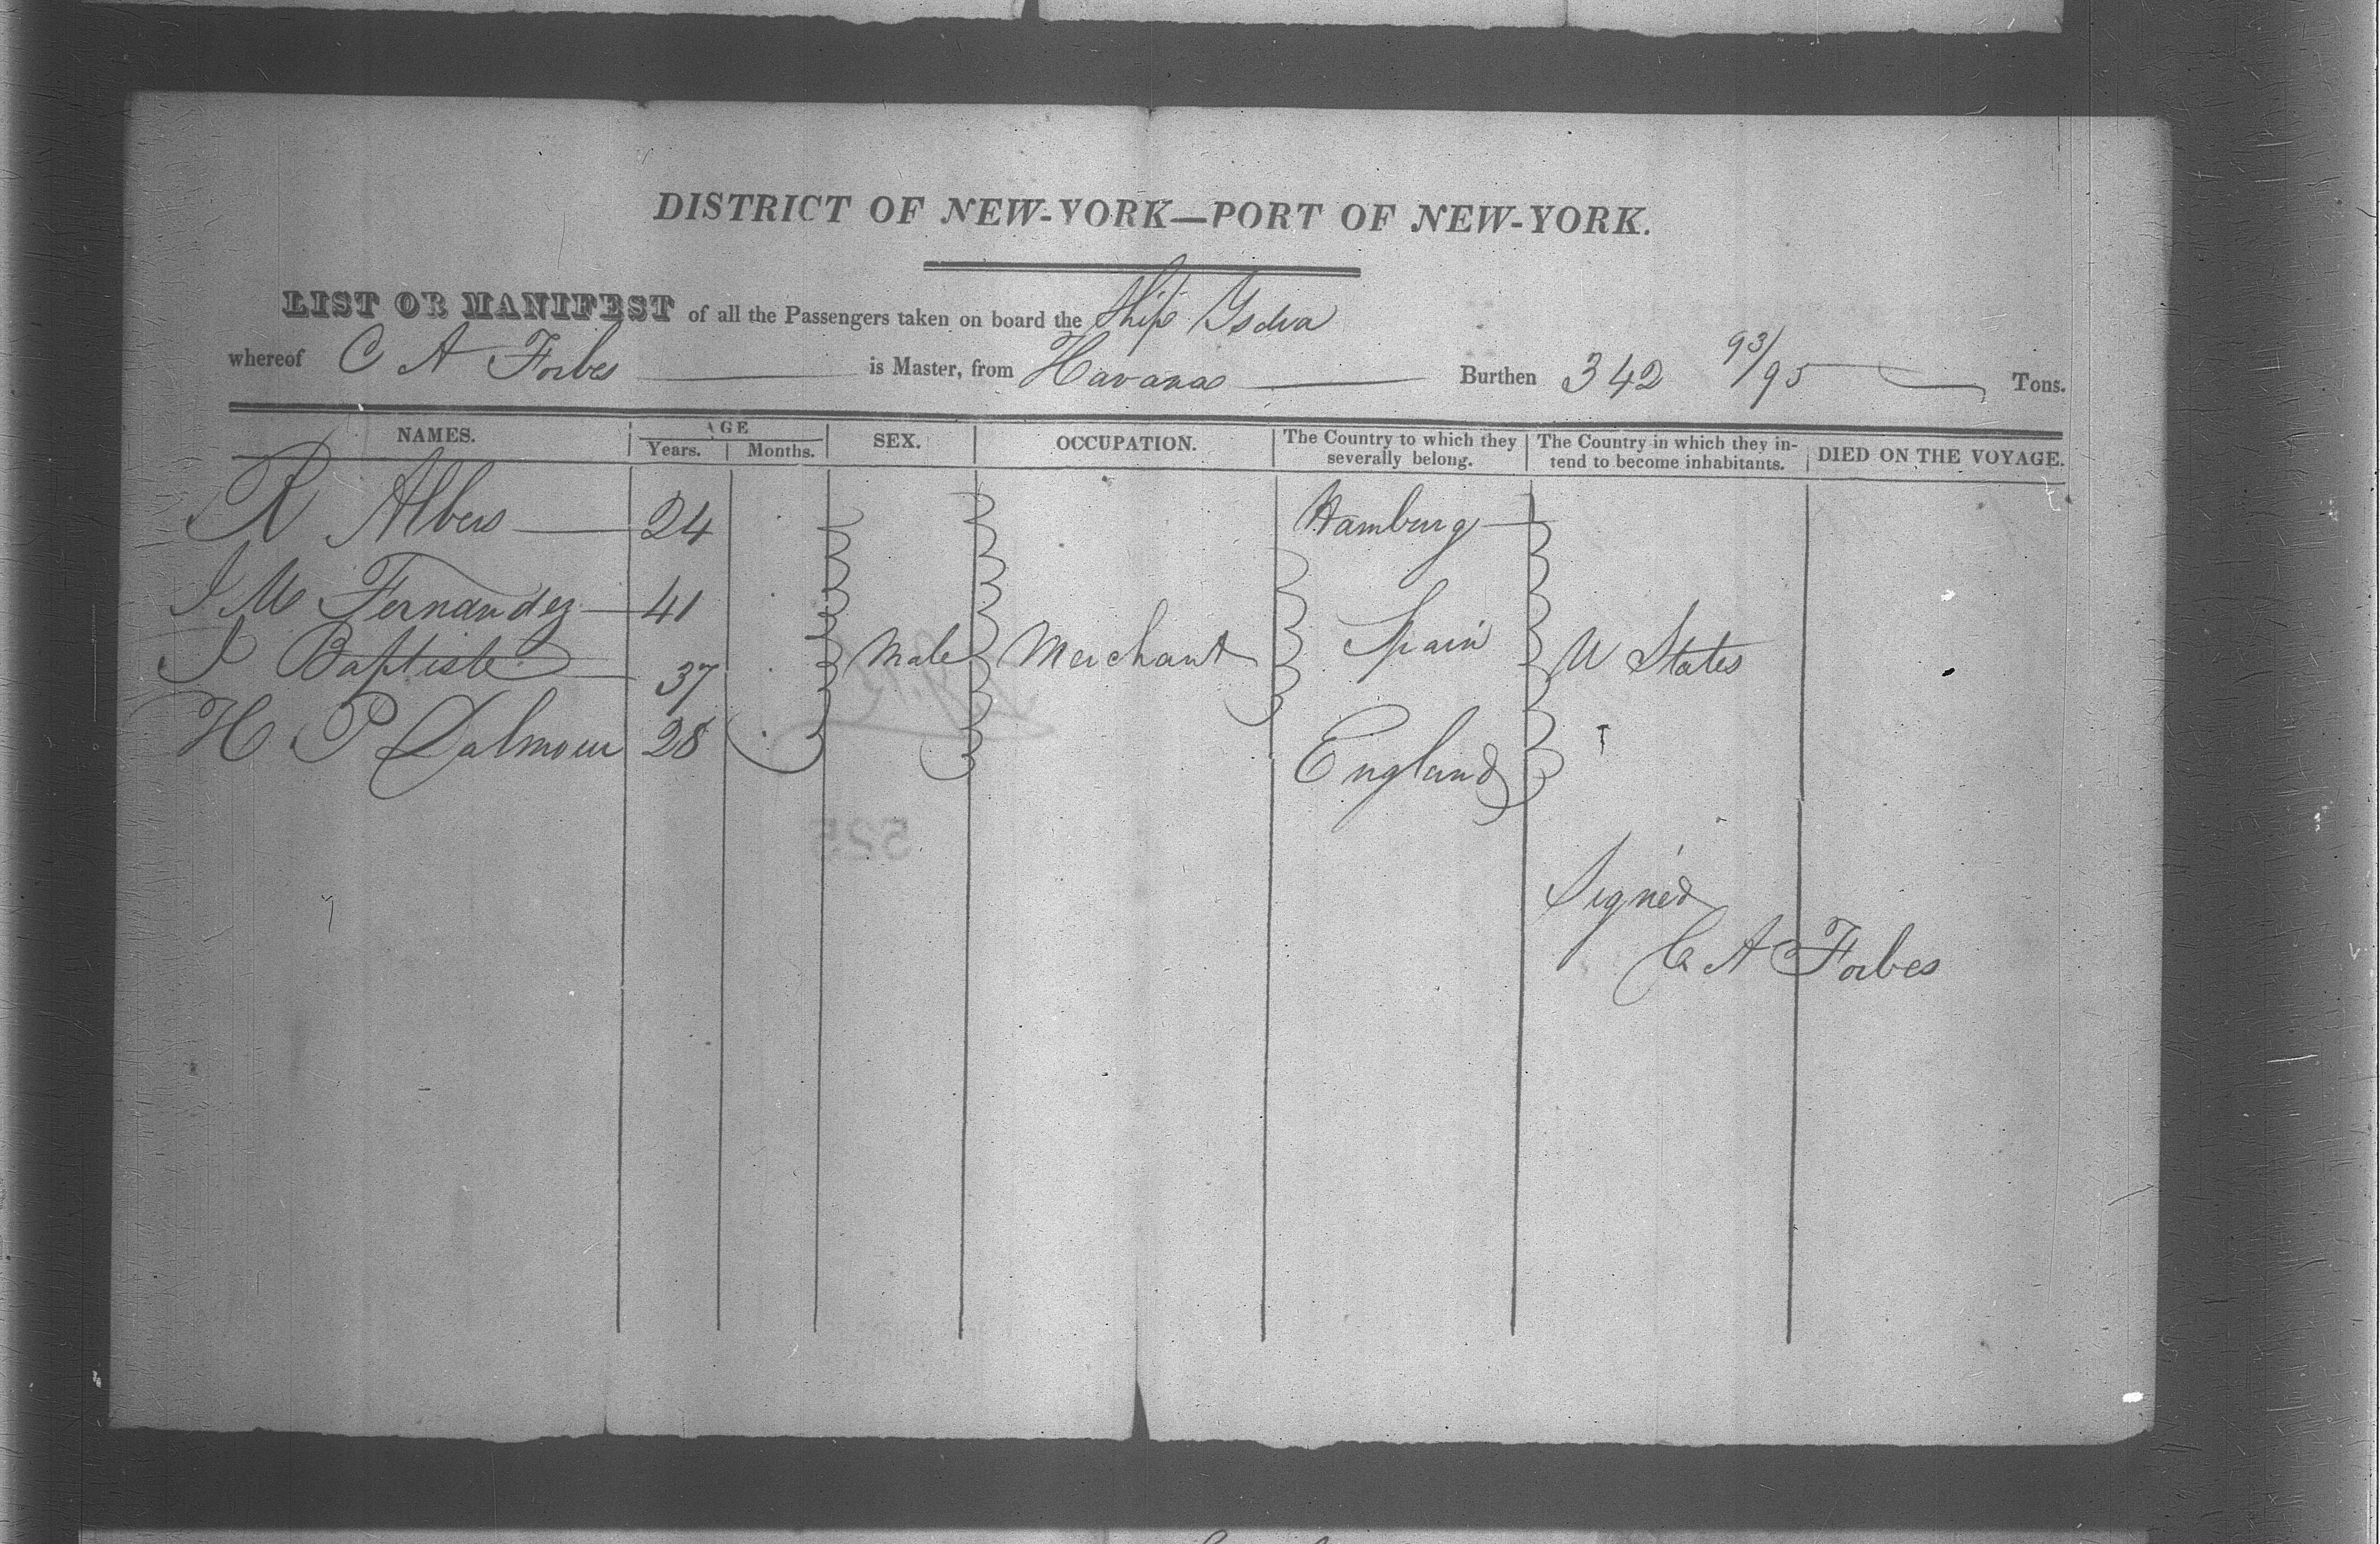 DISTRICT OF NEW-YORK—PORT OF NEW-YORK.
LIST OR MANIFEST of all the Passengers taken on board the Ship
whereof C A Forbes is Master, from Havana Burthen 342 93/95 Tons.
NAMES. AGE Years. Months. SEX. OCCUPATION. The Country to which they severally belong. The Country in which they intend to become inhabitants. DIED ON THE VOYAGE.
R Albers 24 Hamburg
J M Fernandez 41
J Baptiste 37 Male Merchant Spain U States
H P Dalmour 28 England
Signed
C A Forbes
525